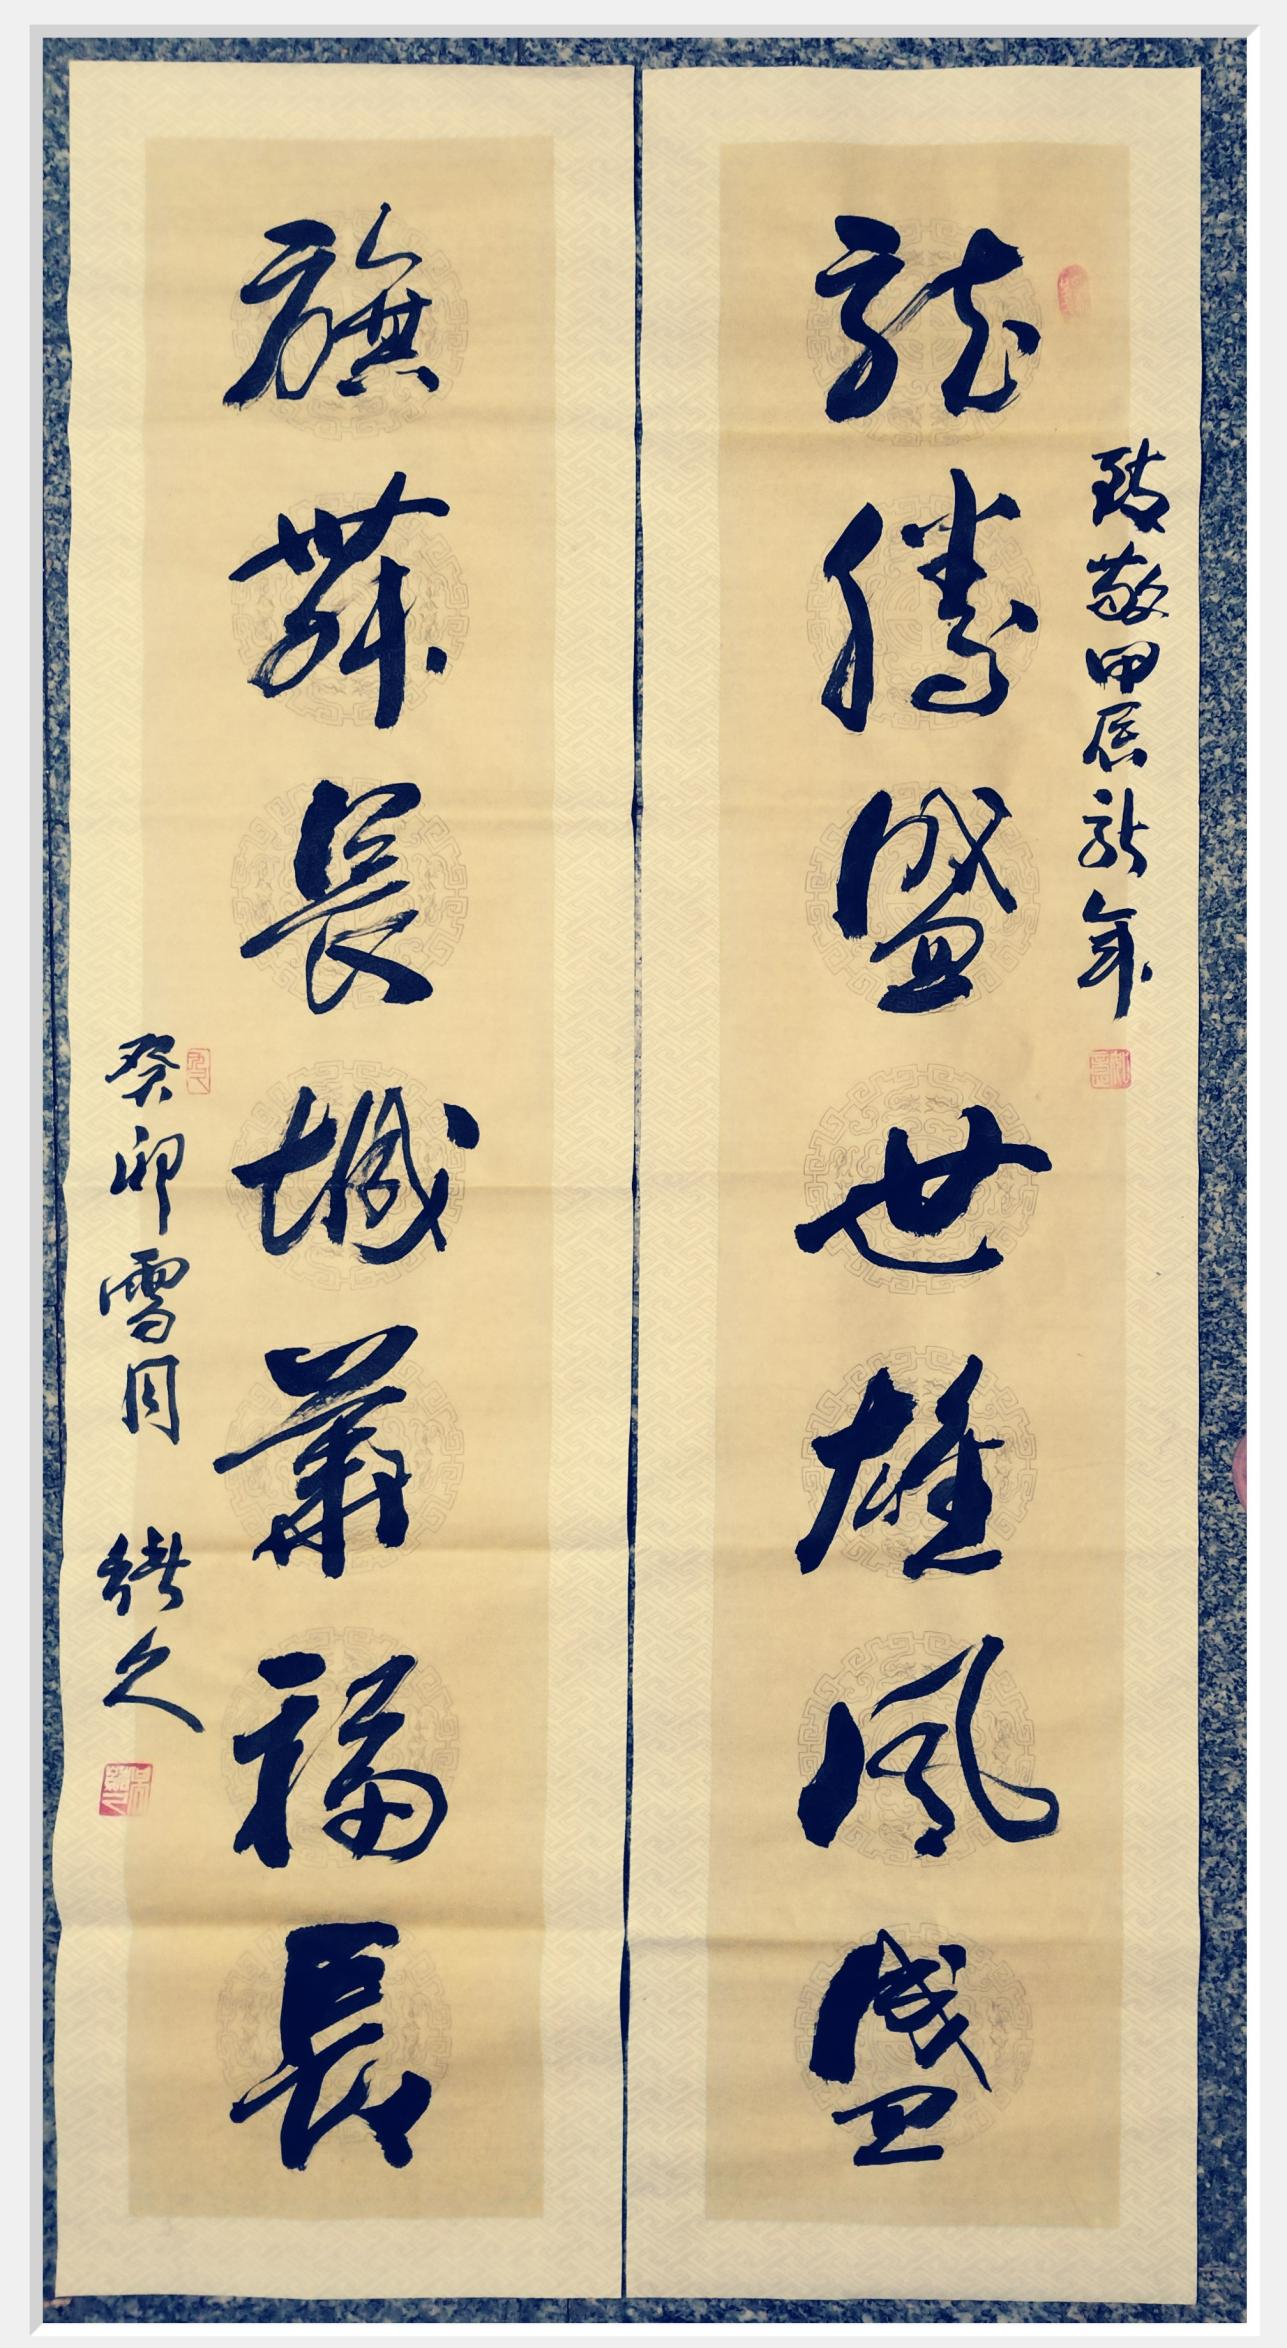 龍騰盛世雄風盛
致敬甲辰新年
旗舞長城萬福長
癸卯雪月 緒久